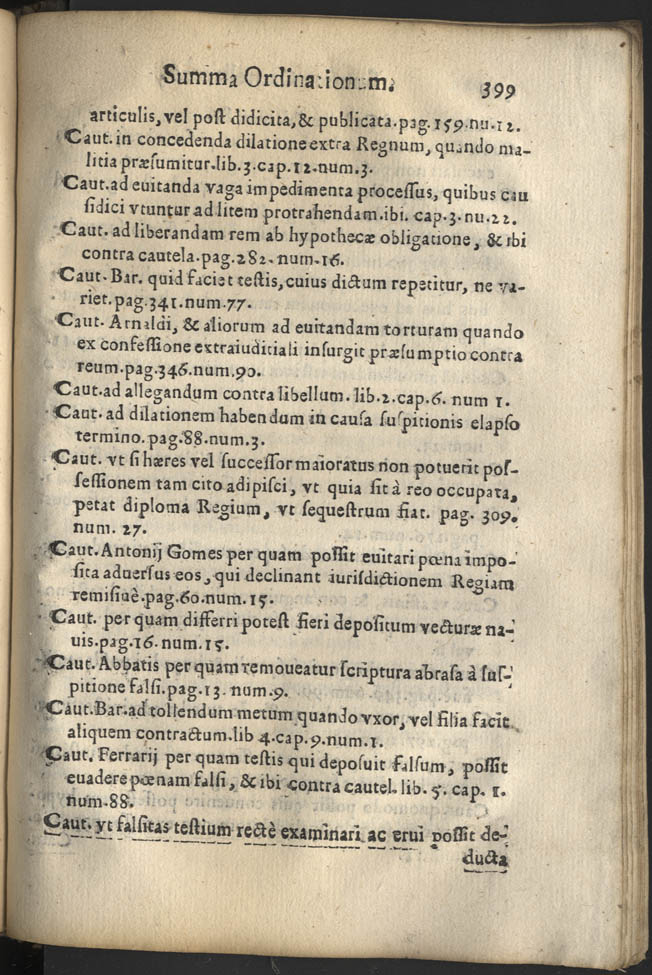 Summa Ordinationum.
399
articulis, vel post didicita, & publicata.pag.159.nu.12.
Caut. in concedenda dilatione extra Regnum, quando ma-
litia præsumitur.lib.3.cap.12.num.3.
Caut.ad euitanda vaga impedimenta processus, quibus cau
sidici vtuntur ad litem protrahendam.ibi. cap.3.nu.22.
Caut. ad liberandam rem ab hypothecæ obligatione, & ibi
contra cautela.pag.282.num.16.
Caut. Bar. quid faciet testis, cuius dictum repetitur, ne va-
riet.pag.341.num.77.
Caut. Arnaldi, & aliorum ad euitandam torturam quando
ex confessione extraiuditiali insurgit præsumptio contra
reum.pag.346.num.90.
Caut.ad allegandum contra libellum. lib.2.cap.6. num 1.
Caut. ad dilationem habendum in causa suspitionis elapso
termino.pag.88.num.3.
Caut. vt si hæres vel successor maioratus non potuerit pos-
sessionem tam cito adipisci, vt quia sit à reo occupata,
petat diploma Regium, vt sequestrum fiat. pag. 309.
num. 27.
Caut. Antonij Gomes per quam possit euitari pœna impo-
sita aduersus eos, qui declinant iurisdictionem Regiam
remisiuè.pag.60.num.15.
Caut. per quam differri potest fieri depositum vecturæ na-
uis.pag.16.num.15.
Caut. Abbatis per quam remoueatur scriptura abrasa à sus-
pitione falsi.pag.13.num.9.
Caut.Bar.ad tollendum metum quando vxor, vel filia facit
aliquem contractum.lib 4.cap.9.num.1.
Caut. Ferrarij per quam testis qui deposuit falsum, possit
euadere pœnam falsi, & ibi contra cautel. lib. 5. cap. 1.
num.88.
Caut. vt falsitas testium rectè examinari ac erui possit de-
ducta